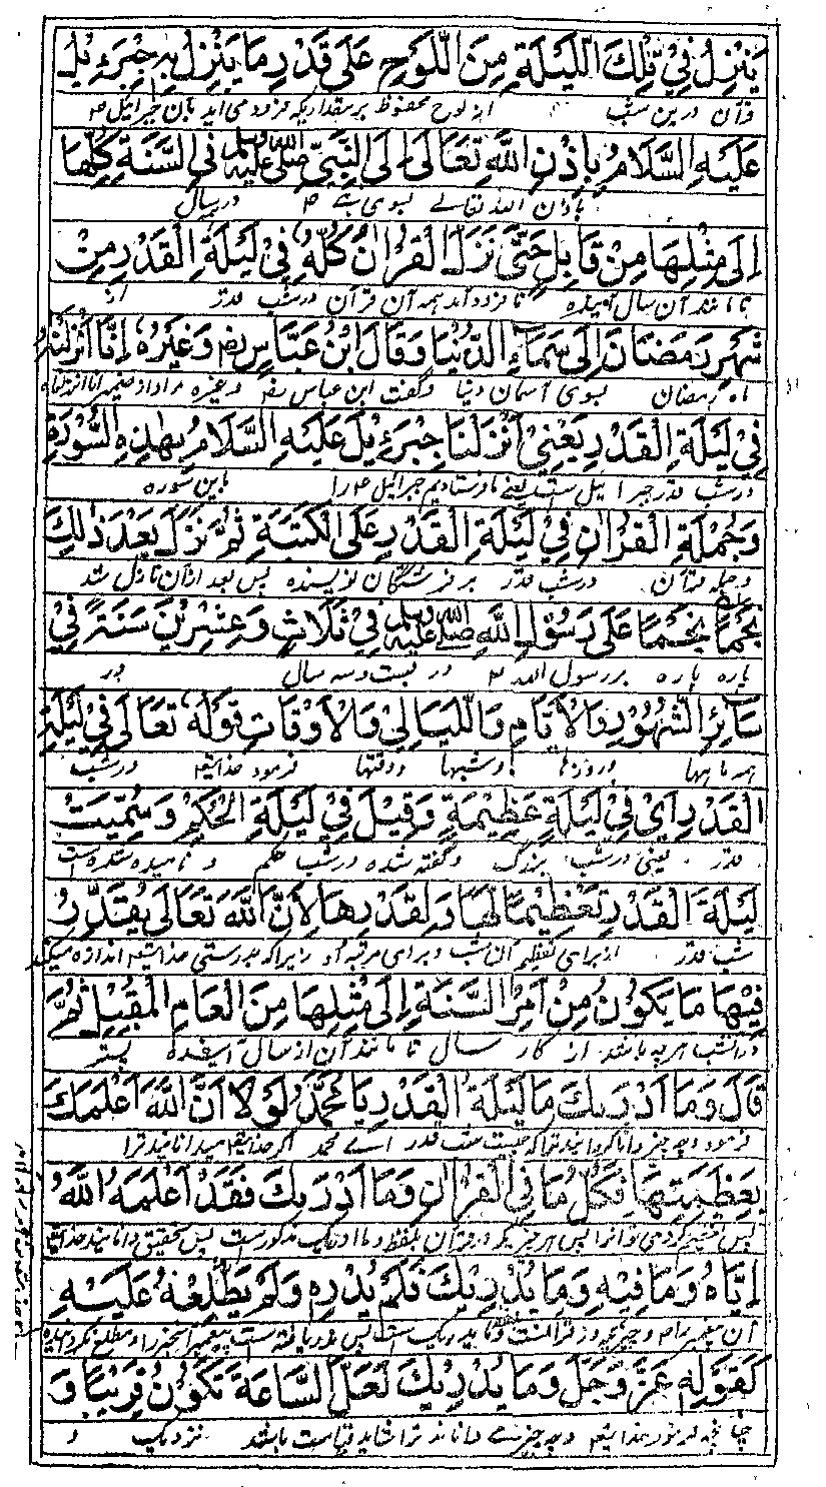 يَنْزِلُ فِي تِلْكَ اللَّيْلَةِ مِنَ اللَّوْحِ عَلَى قَدْرِ مَا يَنْزِلُ بِهِ جِبْرَئِيلُ
قرآن درین شب از لوح محفوظ بر مقداریکه فرود می آید بآن جبرائیل ۴
عَلَيْهِ السَّلَامُ بِإِذْنِ اللَّهِ تَعَالَى إِلَى النَّبِيِّ صَلَّى اللَّهُ عَلَيْهِ وَسَلَّمَ فِي السَّنَةِ كُلِّهَا
باذن الله تعالے بسوی نبی ۴ در سال
إِلَى مِثْلِهَا مِنْ قَابِلٍ حَتَّى نَزَلَ الْقُرْآنُ كُلُّهُ فِي لَيْلَةِ الْقَدْرِ مِنْ
تا مانند آن سال آینده تا فرود آمد همه آن قرآن در شب قدر از
شَهْرِ رَمَضَانَ إِلَى سَمَاءِ الدُّنْيَا وَقَالَ ابْنُ عَبَّاسٍ رض وَغَيْرُهُ إِنَّا أَنْزَلْنَاهُ
ماه رمضان بسوی آسمان دنیا و گفت ابن عباس رض و غیره مراد از ضمیر انا انزلناه
فِي لَيْلَةِ الْقَدْرِ يَعْنِي أَنْزَلْنَا جِبْرَئِيلَ عَلَيْهِ السَّلَامُ بِهَذِهِ السُّورَةِ
در شب قدر جبرائیل ست یعنے ما فرستادیم جبرائیل ۴ را باین سوره
وَجُمْلَةِ الْقُرْآنِ فِي لَيْلَةِ الْقَدْرِ عَلَى الْكَتَبَةِ ثُمَّ نَزَلَ بَعْدَ ذٰلِكَ
و جمله قرآن در شب قدر بر فرشتگان نویسنده پس بعد ازان نازل شد
نَجْمًا نَجْمًا عَلَى رَسُولِ اللَّهِ صَلَّى اللَّهُ عَلَيْهِ وَسَلَّمَ فِي ثَلَاثٍ وَعِشْرِينَ سَنَةً فِي
پاره پاره بر رسول الله ۴ در بست و سه سال در
سَائِرِ الشُّهُورِ وَالْأَيَّامِ وَاللَّيَالِي وَالْأَوْقَاتِ قَوْلُهُ تَعَالَى فِي لَيْلَةِ
همه ماهها و روزها و شبها و وقتها فرمود خدایتع در شب
الْقَدْرِ أَيْ فِي لَيْلَةٍ عَظِيمَةٍ وَقِيلَ فِي لَيْلَةِ الْحُكْمِ وَسُمِّيَتْ
قدر یعنی در شب بزرگ و گفته شده در شب حکم و نامیده شده است
لَيْلَةَ الْقَدْرِ تَعْظِيمًا لَهَا وَلِقَدْرِهَا لِأَنَّ اللَّهَ تَعَالَى يُقَدِّرُ
شب قدر از برای تعظیم آن شب و برای مرتبه او زیرا که بدرستی خدایتع اندازه میکند
فِيهَا مَا يَكُونُ مِنْ أَمْرِ السَّنَةِ إِلَى مِثْلِهَا مِنَ الْعَامِ الْمُقْبِلِ ثُمَّ
در آنشب هر چه باشد از کار سال تا مانند آن از سال آینده پستر
قَالَ وَمَا أَدْرَىكَ مَا لَيْلَةُ الْقَدْرِ يَا مُحَمَّدُ لَوْلَا أَنَّ اللَّهَ أَعْلَمَكَ
فرمود و چه چیز دانا گردانید ترا که چیست شب قدر اے محمد اگر خدایتع نمیدانانید ترا
بِعَظَمَتِهَا فَكُلُّ مَا فِي الْقُرْآنِ وَمَا أَدْرَىكَ فَقَدْ أَعْلَمَهُ اللَّهُ
پس هر چیز که در قرآن بلفظ و ما ادریک مذکورست پس بتحقیق دانانید خدایتع
إِيَّاهُ وَمَا فِيهِ وَمَا يُدْرِيكَ فَلَمْ يُدْرِهِ وَلَمْ يُطْلِعْهُ عَلَيْهِ
آن پیغمبر را و چیزیکه در قرآنست و ما یدریک است پس
كَقَوْلِهِ عَزَّ وَجَلَّ وَمَا يُدْرِيكَ لَعَلَّ السَّاعَةَ تَكُونُ قَرِيبًا وَ
چنانچه فرمود خدایتع و چه چیز دانانید ترا شاید قیامت باشد نزدیک و